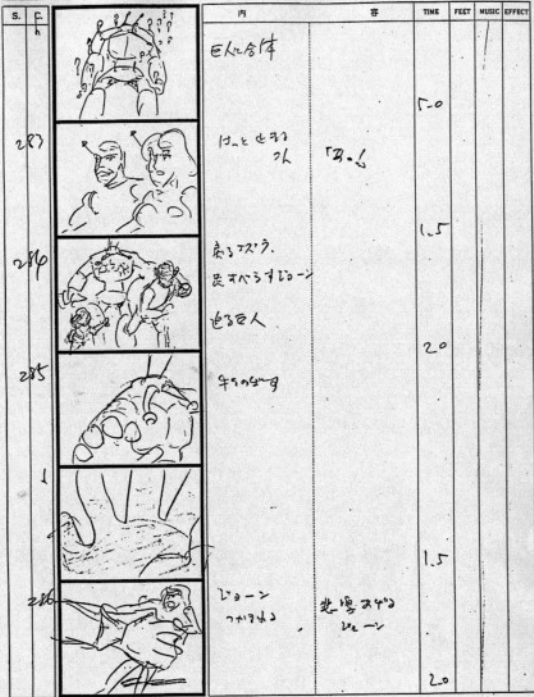 S. C. 内 容 TIME FEET MUSIC EFFECT
巨人に合体
5-0
283
はっとする
「あっ!
1.5
284
足すべらすジョーン
迫る巨人
20
285
手をのばす
1.5
286
ジョーン
つかまれる
悲鳴あげる
ジョーン
2-0